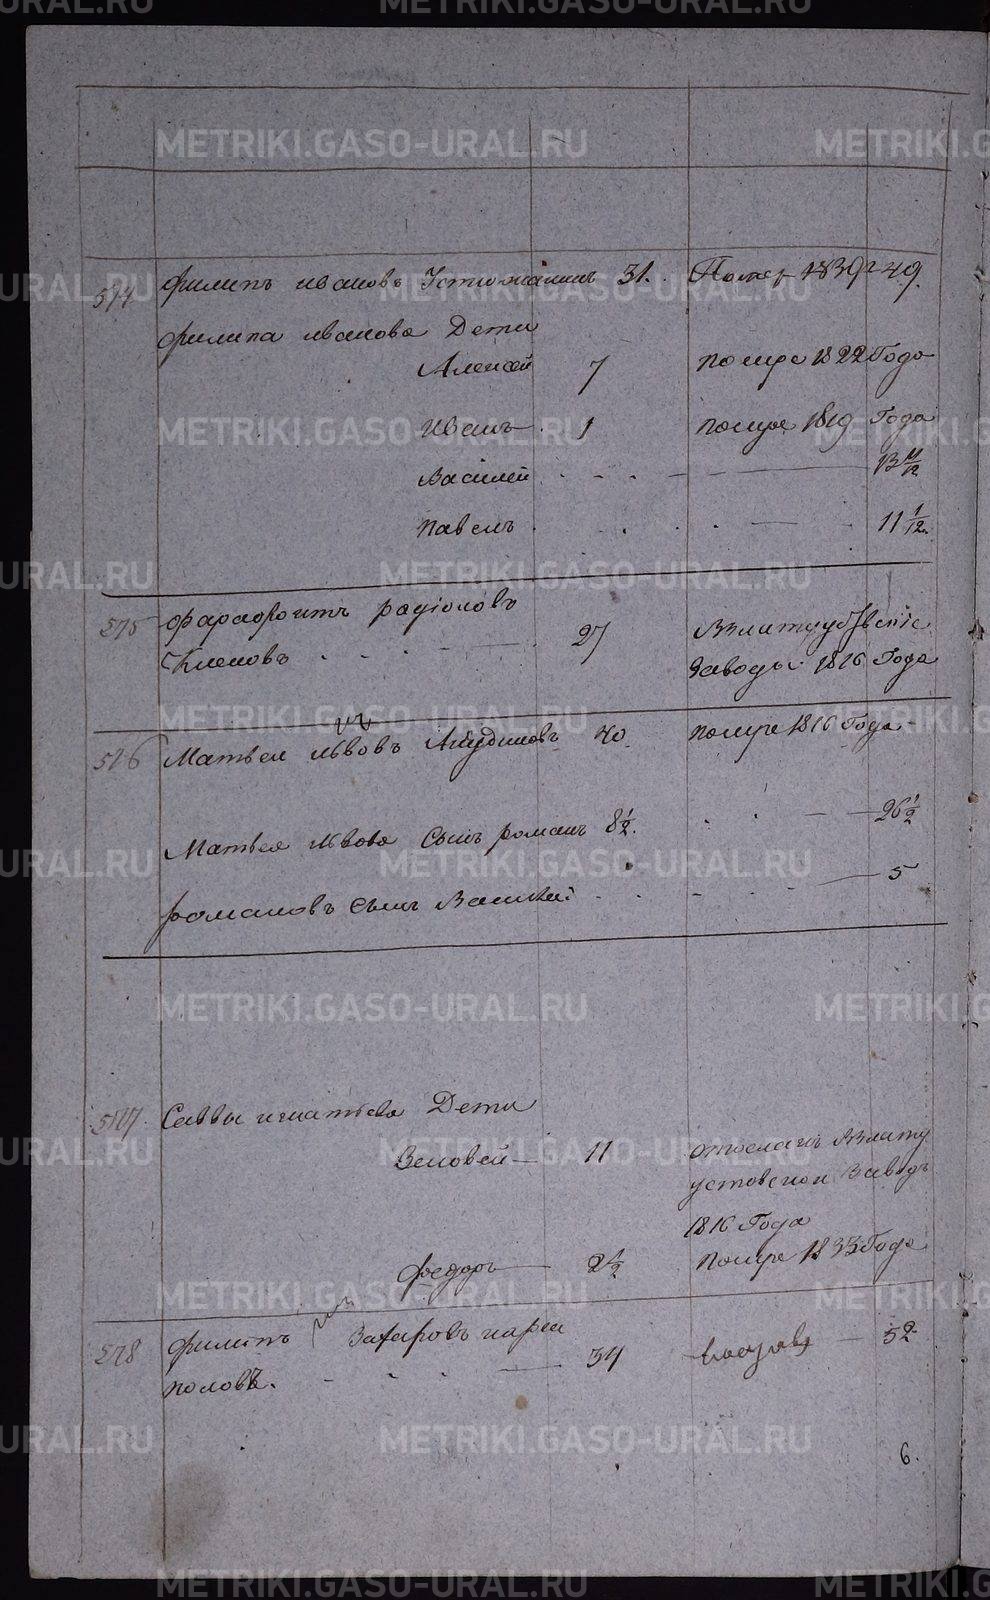 METRIKI.GASO-URAL.RU
574 Филипъ Ивановъ Устюжанинъ 31. Помер 1839 г 49.
Филипа Иванова Дети
Алексей 7 помре 1822 Года
Иванъ 1 помре 1819 Года
Василей 13 11/12
Павелъ 11 1/12.
575 радіоновъ 27
заводы 1816 Года
576 Матвей Львовъ 40 помре 1816 Года
Матвея Львова Сынъ романъ 8 1/2. 26 1/2
романовъ сынъ Василей 5
577. Саввы игнатьева Дети
Зеновей 11 отосланъ Взлату
устовской Заводъ
1816 Года
Федоръ 2 1/2 Помре 1833 Года
578 Филипъ Захаровъ карса
половъ. 34 52
6.